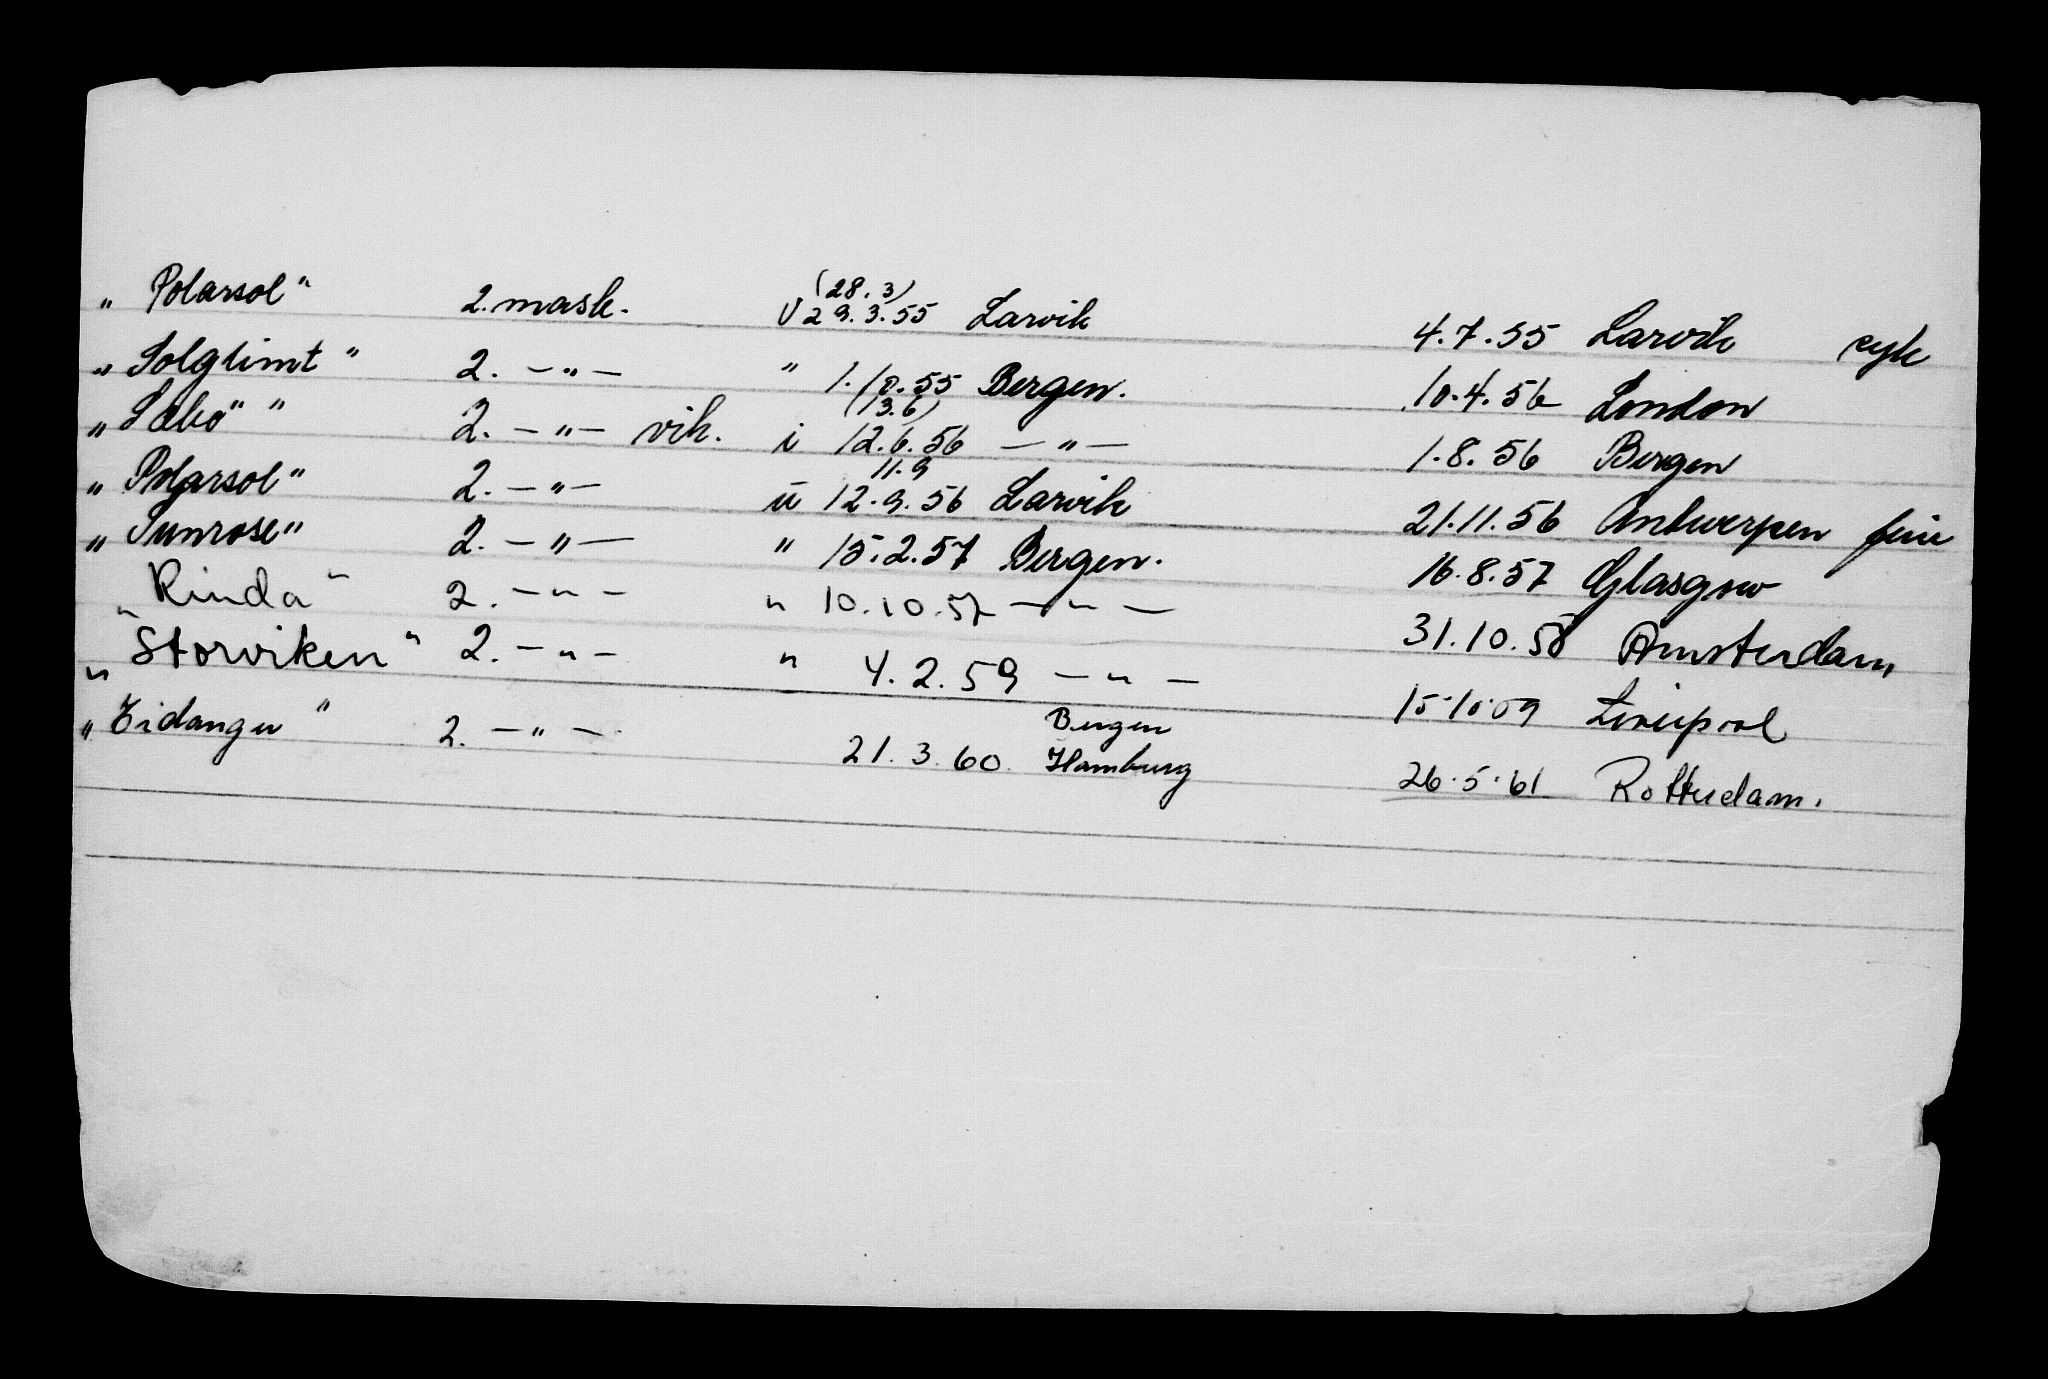 „Polarsol“ 2. mask. (28.3) u 29.3.55 Larvik 4.7.55 Larvik syk
„Solglimt“ 2. –„– " 1.10.55 Bergen. 10.4.56 London
„Sæbø“ " 2. –„– vik. i (13.6) 12.6.56 –„– 1.8.56 Bergen
„Polarsol“ 2. –„– u 11.9 12.9.56 Larvik 21.11.56 Antwerpen
„Sunrose“ 2. –„– " 15.2.57 Bergen. 16.8.57 Glasgow
„Rinda“ 2. –„– " 10.10.57 –„– 31.10.58 Amsterdam
„Storviken“ 2. –„– " 4.2.59 –„– 15.10.59 Liverpool
„Eidanger“ 2. –„– 21.3.60. Bergen Hamburg 26.5.61 Rotterdam.